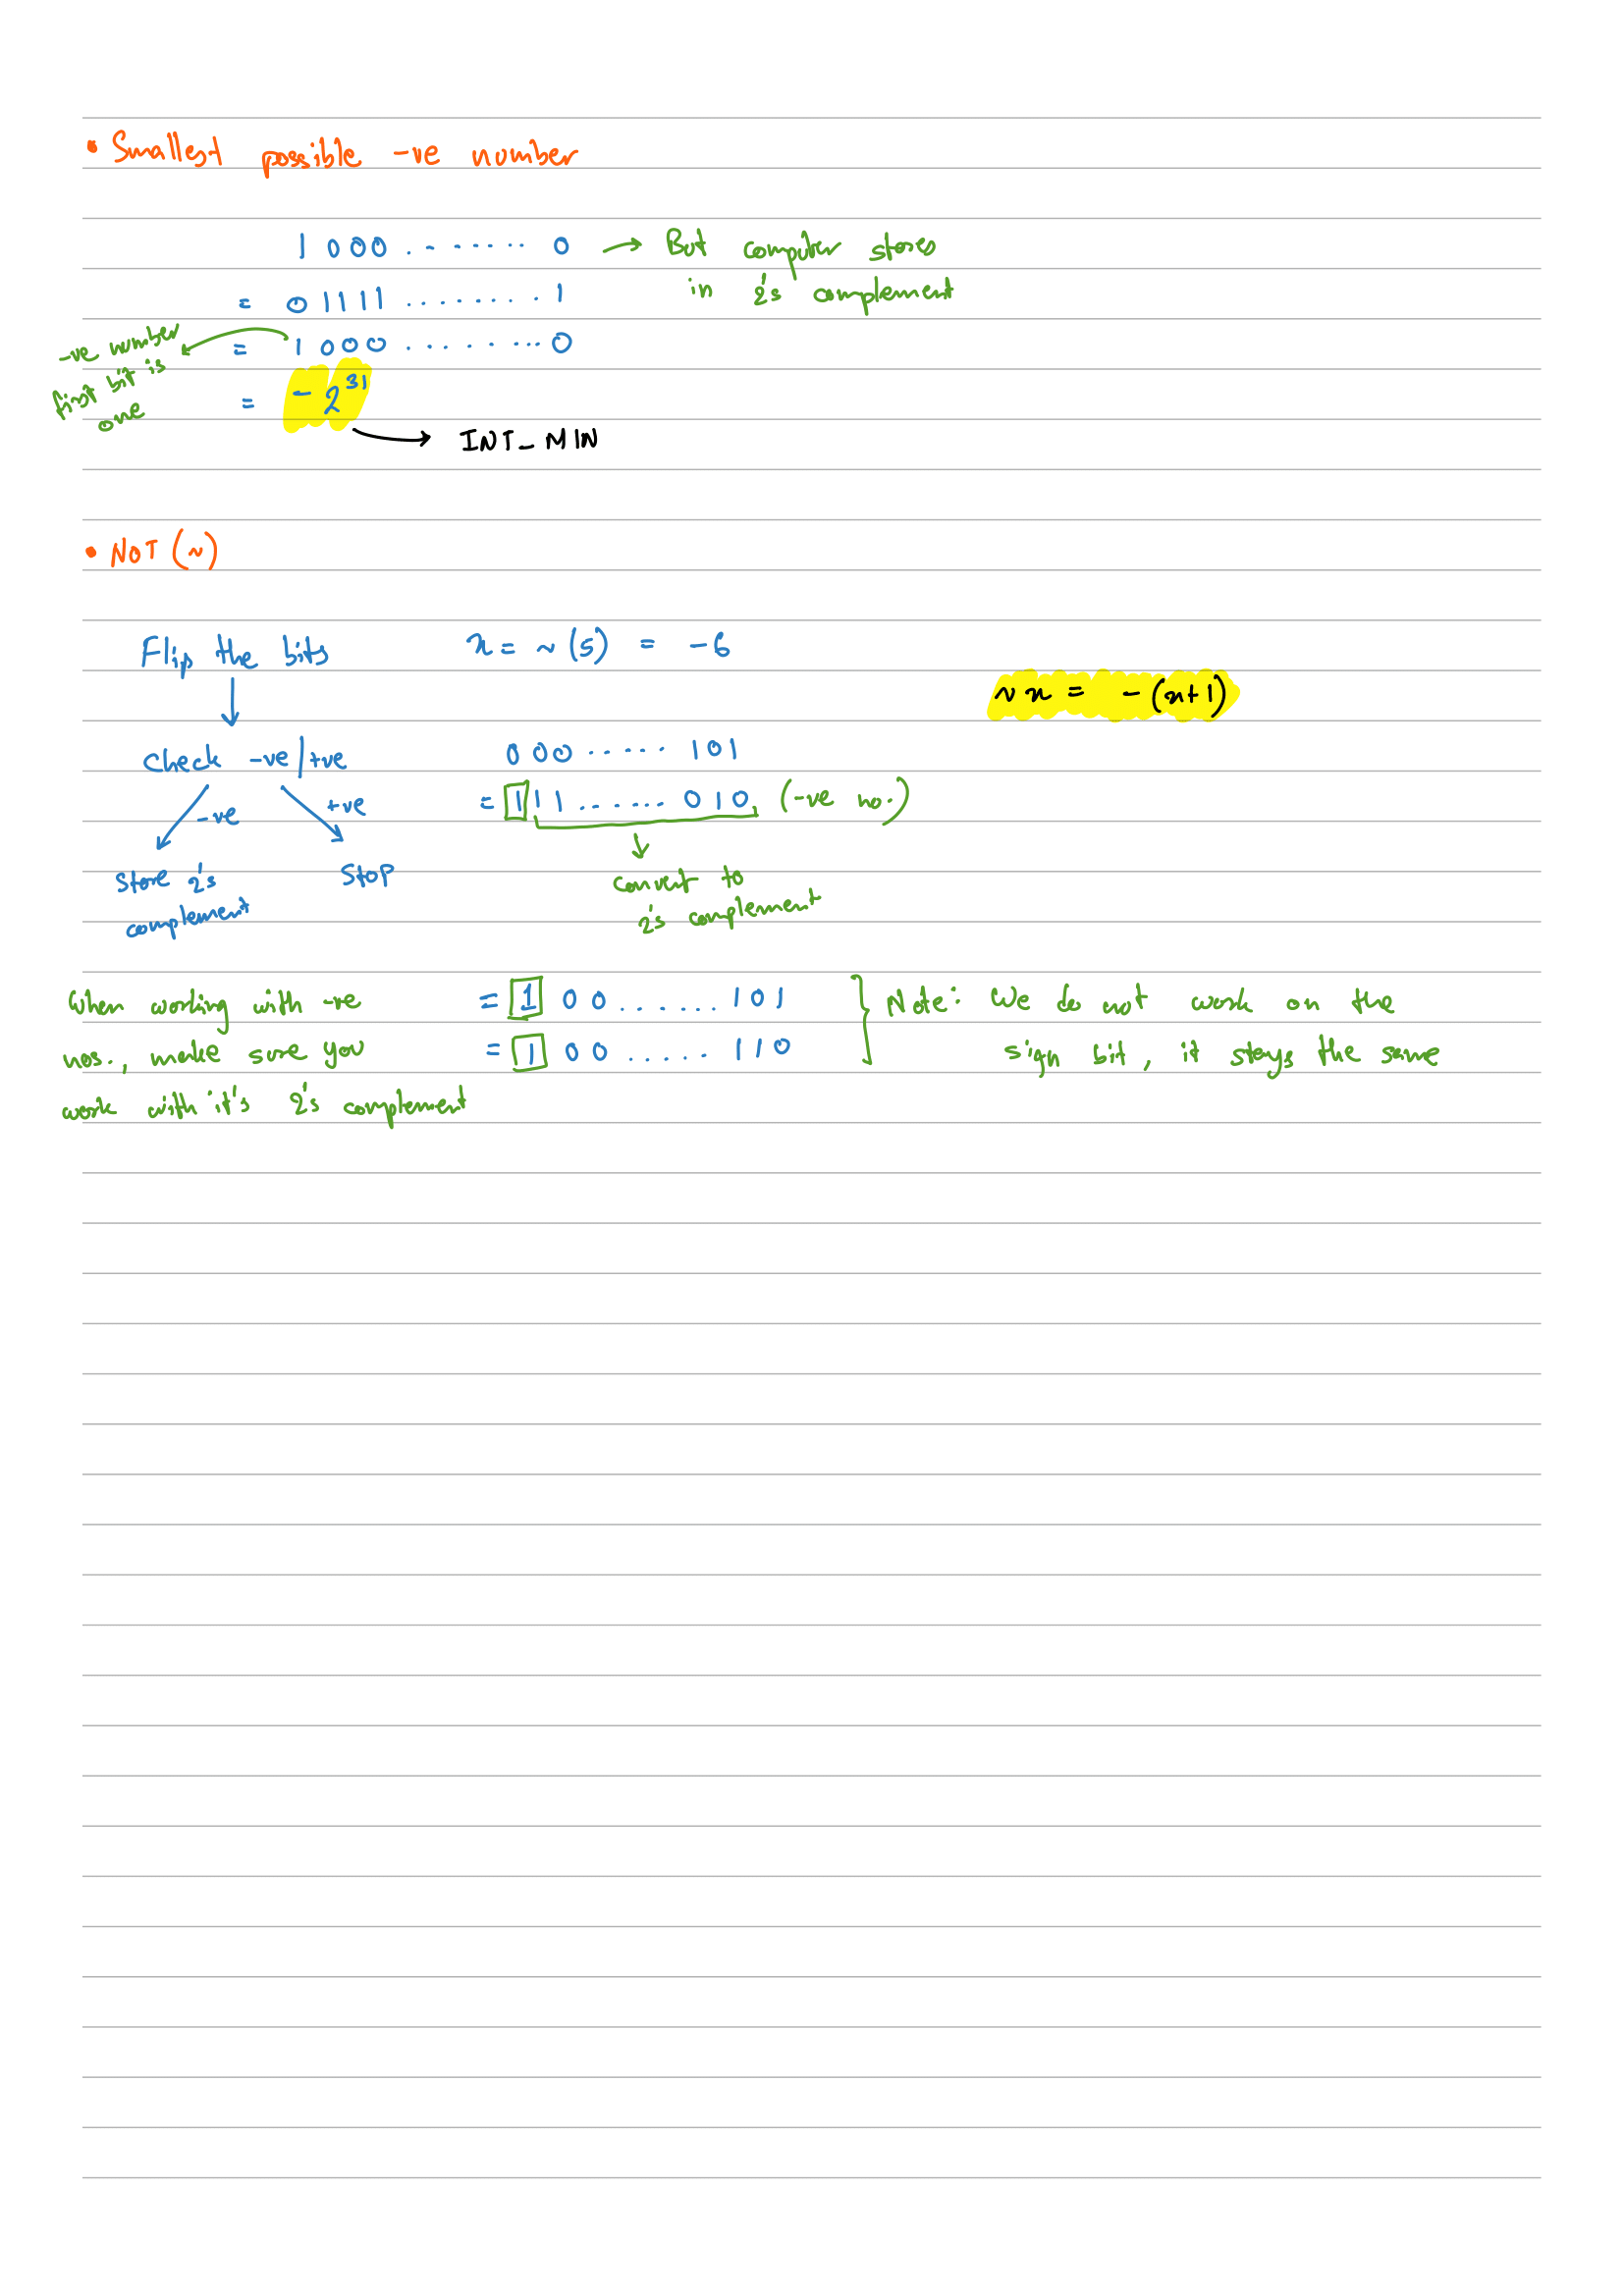 • Smallest possible -ve number
1 000 ......... 0 → But computer stores
in 2's complement
= 01111 ......... 1
= 1000 ......... 0
-ve number
first bit is
one
= -2^31
INT_MIN
• NOT (~)
Flip the bits
x = ~(5) = -6
~x = -(x+1)
Check -ve/+ve
000 ...... 101
= 111 ....... 010 (-ve no.)
-ve
+ve
Store 2's
complement
Stop
Convert to
2's complement
When working with -ve
nos., make sure you
work with it's 2's complement
= 1 00 ...... 101
= 1 00 ..... 110
Note: We do not work on the
sign bit, it stays the same